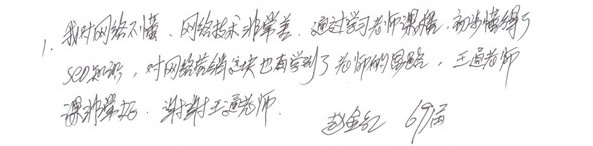 1. 我对网络不懂、网络技术非常差、通过学习老师课程、初步懂得了
SEO知识，对网络营销这块也学到了老师的思路，王通老师
课非常好. 谢谢王通老师.
赵金红 69届